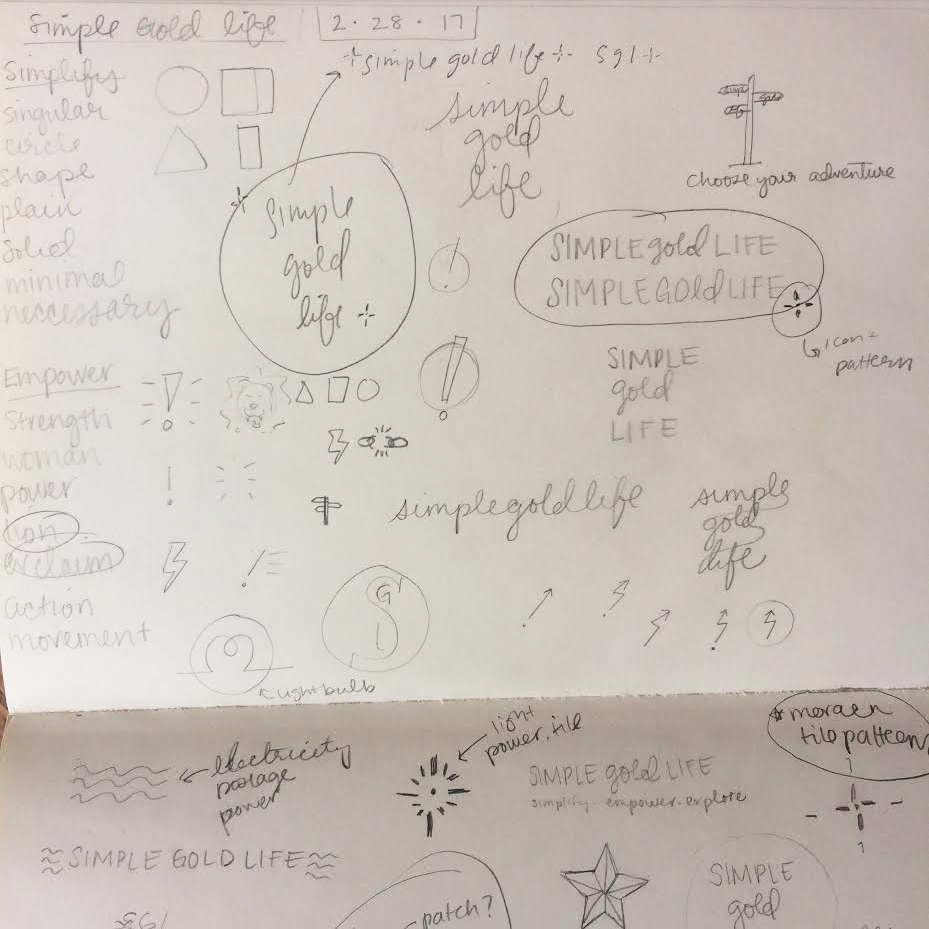 Simple Gold life
2 · 28 · 17
simple gold life
sgl
Simplify
singular
circle
shape
plain
Solid
minimal
neccessary
simple
gold
life
simple
gold
life
choose your adventure
SIMPLE gold LIFE
SIMPLEGOldLIFE
icon =
pattern
SIMPLE
gold
LIFE
Empower
Strength
woman
power
lion
exclaim
action
movement
simplegoldlife
simple
gold
life
SG
lightbulb
electricity
power
light
power. tile
SIMPLE gold LIFE
simplify. empower. explore
tile pattern
SIMPLE GOLD LIFE
SGl
patch?
SIMPLE
gold